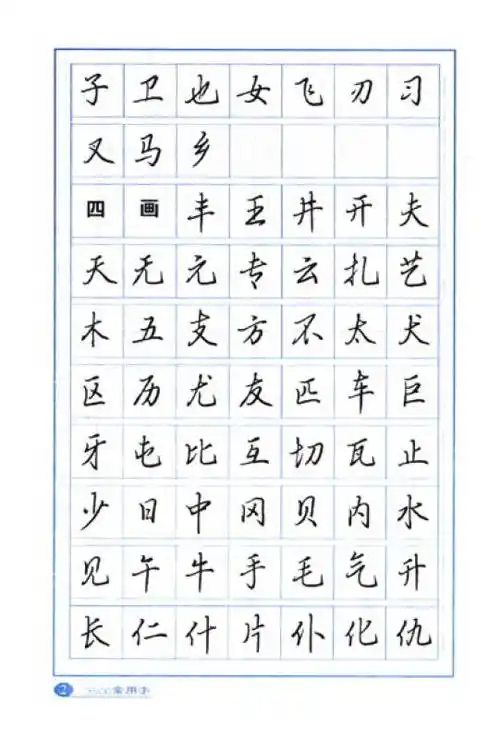 子卫也女飞刃习
叉马乡
四画丰王井开夫
天无元专云扎艺
木五支方不太犬
区历尤友匹车巨
牙屯比互切瓦止
少日中冈贝内水
见午牛手毛气升
长仁什片仆化仇
2 常用字